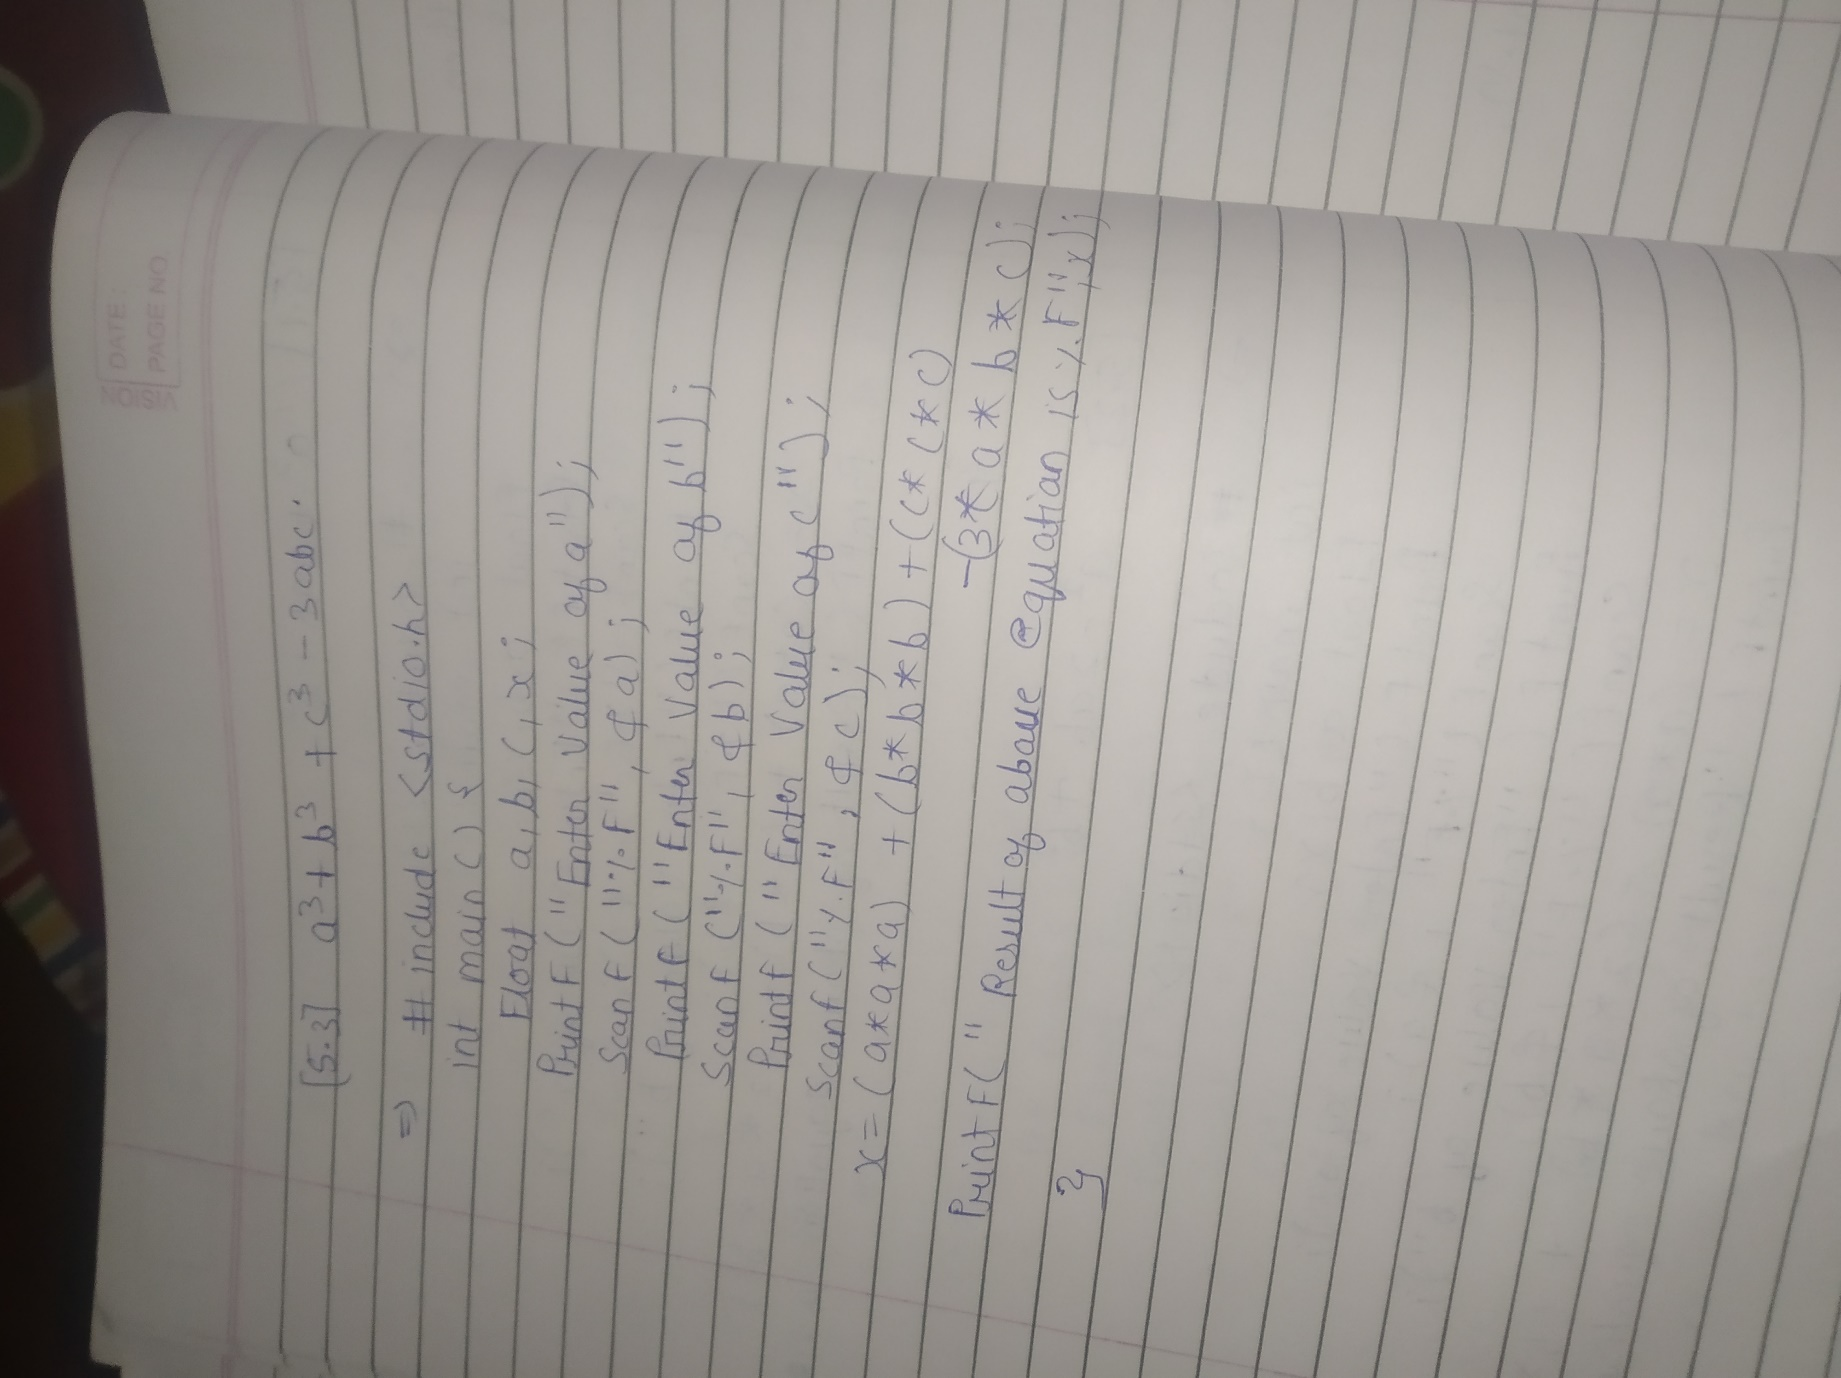 VISION DATE:
PAGE NO
[5.3] a³ + b³ + c³ - 3abc.
⇒ # include <stdio.h>
int main () {
Float a, b, c, x;
PrintF (" Enter Value of a");
ScanF ("%.F", &a);
PrintF ("Enter Value of b");
ScanF ("%.F", &b);
PrintF ("Enter Value of c");
ScanF ("%.F", &c);
x = (a*a*a) + (b*b*b) + (c*c*c)
-(3*a*b*c);
PrintF(" Result of above equation is %.F", x);
}